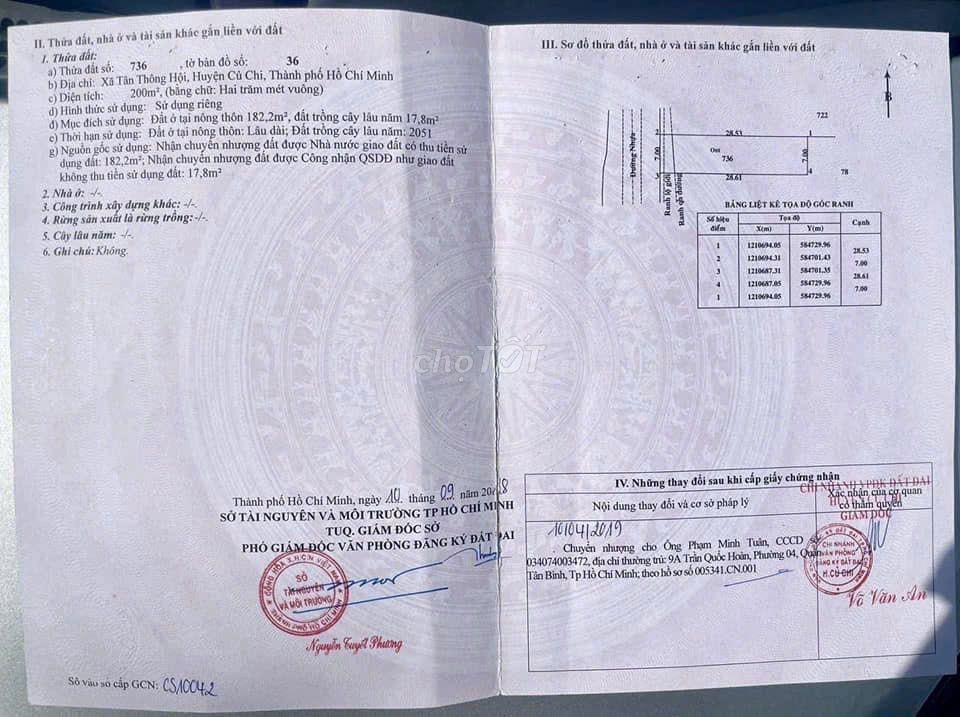 II. Thửa đất, nhà ở và tài sản khác gắn liền với đất
1. Thửa đất:
a) Thửa đất số: 736 , tờ bản đồ số: 36
b) Địa chỉ: Xã Tân Thông Hội, Huyện Củ Chi, Thành phố Hồ Chí Minh
c) Diện tích: 200m², (bằng chữ: Hai trăm mét vuông)
d) Hình thức sử dụng: Sử dụng riêng
đ) Mục đích sử dụng: Đất ở tại nông thôn 182,2m², đất trồng cây lâu năm 17,8m²
e) Thời hạn sử dụng: Đất ở tại nông thôn: Lâu dài; Đất trồng cây lâu năm: 2051
g) Nguồn gốc sử dụng: Nhận chuyển nhượng đất được Nhà nước giao đất có thu tiền sử
dụng đất: 182,2m²; Nhận chuyển nhượng đất được Công nhận QSDĐ như giao đất
không thu tiền sử dụng đất: 17,8m²
2. Nhà ở: -/-.
3. Công trình xây dựng khác: -/-.
4. Rừng sản xuất là rừng trồng:-/-.
5. Cây lâu năm: -/-.
6. Ghi chú:Không.
Thành phố Hồ Chí Minh, ngày 10 tháng 09 năm 2018
SỞ TÀI NGUYÊN VÀ MÔI TRƯỜNG TP HỒ CHÍ MINH
TUQ. GIÁM ĐỐC SỞ
PHÓ GIÁM ĐỐC VĂN PHÒNG ĐĂNG KÝ ĐẤT ĐAI
CỘNG HÒA X.H.C.N VIỆT NAM
SỞ
TÀI NGUYÊN
VÀ MÔI TRƯỜNG
THÀNH PHỐ HỒ CHÍ MINH
Nguyễn Tuyết Phương
Số vào sổ cấp GCN: CS10042
III. Sơ đồ thửa đất, nhà ở và tài sản khác gắn liền với đất
B
722
2 28.53 1
Đường Nhựa
7.00
Ont
736
7.00
3 28.61 4
78
Ranh lộ giới
BẢNG LIỆT KÊ TỌA ĐỘ GÓC RANH
Số hiệu điểm Tọa độ Cạnh
X(m) Y(m)
1 1210694.05 584729.96
28.53
2 1210694.31 584701.43
7.00
3 1210687.31 584701.35
28.61
4 1210687.05 584729.96
7.00
1 1210694.05 584729.96
chợ TỐT
IV. Những thay đổi sau khi cấp giấy chứng nhận
Nội dung thay đổi và cơ sở pháp lý
Xác nhận của cơ quan
có thẩm quyền
CHI NHÁNH VPĐK ĐẤT ĐAI
HUYỆN CỦ CHI
GIÁM ĐỐC
10/04/2019
Chuyển nhượng cho Ông Phạm Minh Tuân, CCCD
034074003472, địa chỉ thường trú: 9A Trần Quốc Hoàn, Phường 04, Quận
Tân Bình, Tp Hồ Chí Minh; theo hồ sơ số 005341.CN.001
CHI NHÁNH
VĂN PHÒNG
ĐĂNG KÝ ĐẤT ĐAI
H.CỦ CHI
Võ Văn An